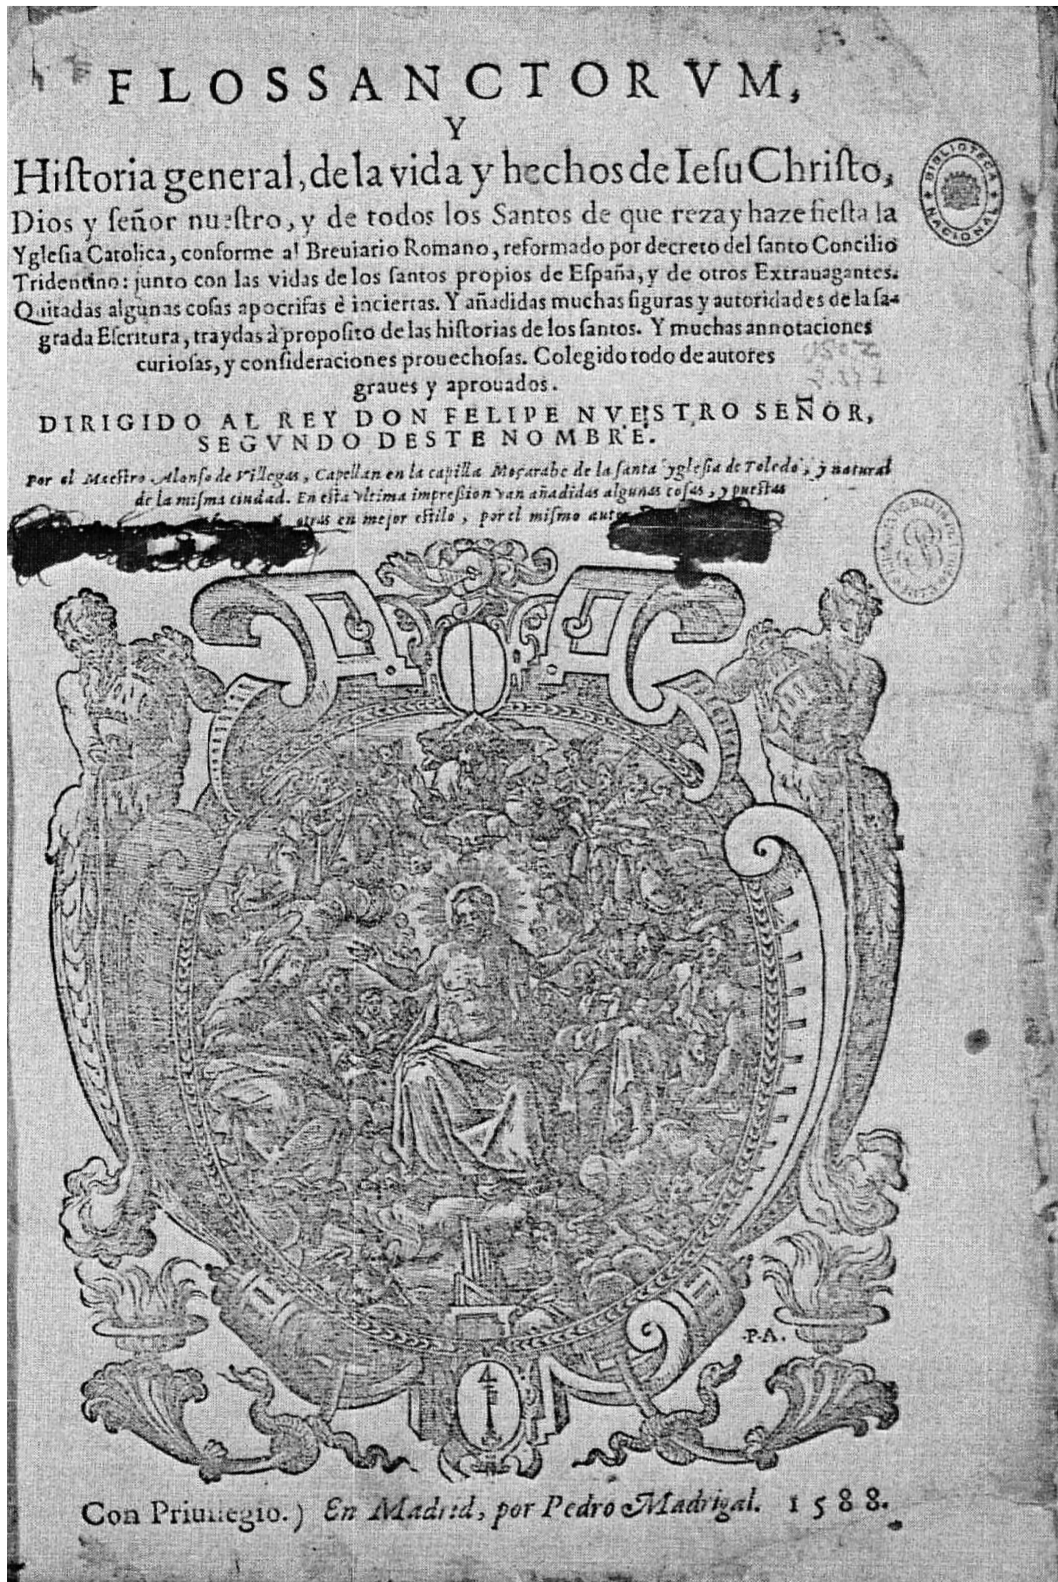 FLOSSANCTORVM,
Y
Hiſtoria general, de la vida y hechos de Ieſu Chriſto,
Dios y ſeñor nueſtro, y de todos los Santos de que reza y haze fieſta la
Ygleſia Catolica, conforme al Breuiario Romano, reformado por decreto del ſanto Concilio
Tridentino: junto con las vidas de los ſantos propios de Eſpaña, y de otros Extrauagantes.
Quitadas algunas coſas apocrifas è inciertas. Y añadidas muchas figuras y autoridades de la ſa-
grada Eſcritura, traydas à propoſito de las hiſtorias de los ſantos. Y muchas annotaciones
curioſas, y conſideraciones prouechoſas. Colegido todo de autores
graues y aprouados.
DIRIGIDO AL REY DON FELIPE NVESTRO SEÑOR,
SEGVNDO DESTE NOMBRE.
Por el Maeſtro Alonſo de Villegas, Capellan en la capilla Moçarabe de la ſanta ygleſia de Toledo, y natural
de la miſma ciudad. En eſta vltima impreſsion van añadidas algunas coſas, y pueſtas
otras en mejor eſtilo, por el miſmo
BIBLIOTECA NACIONAL
.P.A.
Con Priuilegio.) En Madrid, por Pedro Madrigal. 1588.